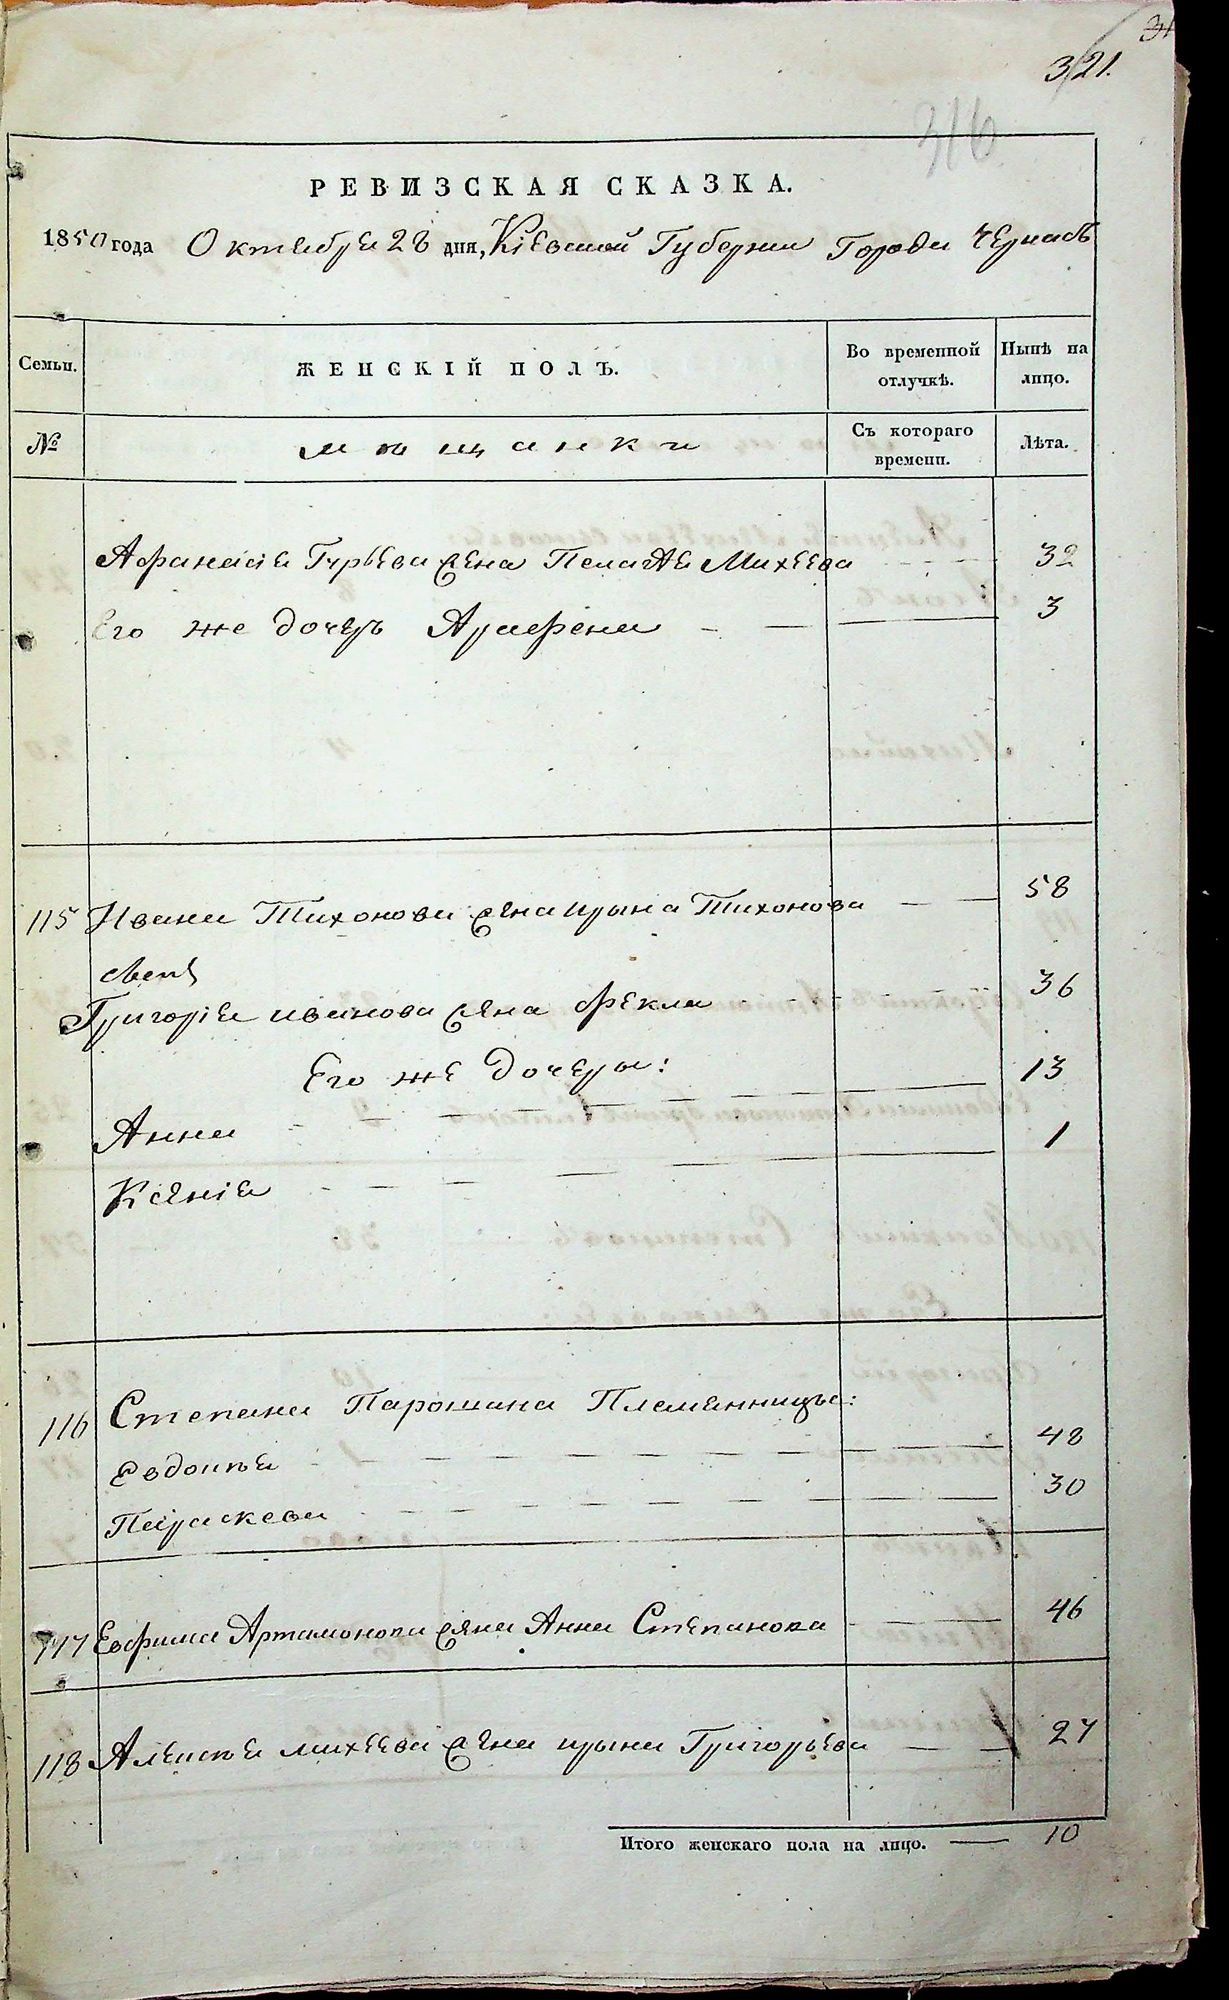 321.
316
РЕВИЗСКАЯ СКАЗКА.
1850 года Октября 28 дня, Кіевской Губернии Города Черкасъ
Семьи.
ЖЕНСКІЙ ПОЛЪ.
Во временной отлучкѣ.
Нынѣ на лицо.
№
мѣщанки
Съ котораго времени.
Лѣта.
Афанасія Гурьева жена Пелагея Михеева 32
Его же дочерь Агрефена 3
115 Ивана Тихонова жена Ирына Тихонова 58
Григорія Иванова жена Фекла 36
Его же дочеры:
Анна 13
Ксенія 1
116 Степана Парошина Племянницы:
Евдокѣя 48
Параскева 30
117 Ефима Артамонова жена Анна Степанова 46
118 Алексѣя Михеева жена Ирына Григорьева 27
Итого женскаго пола на лицо. 10